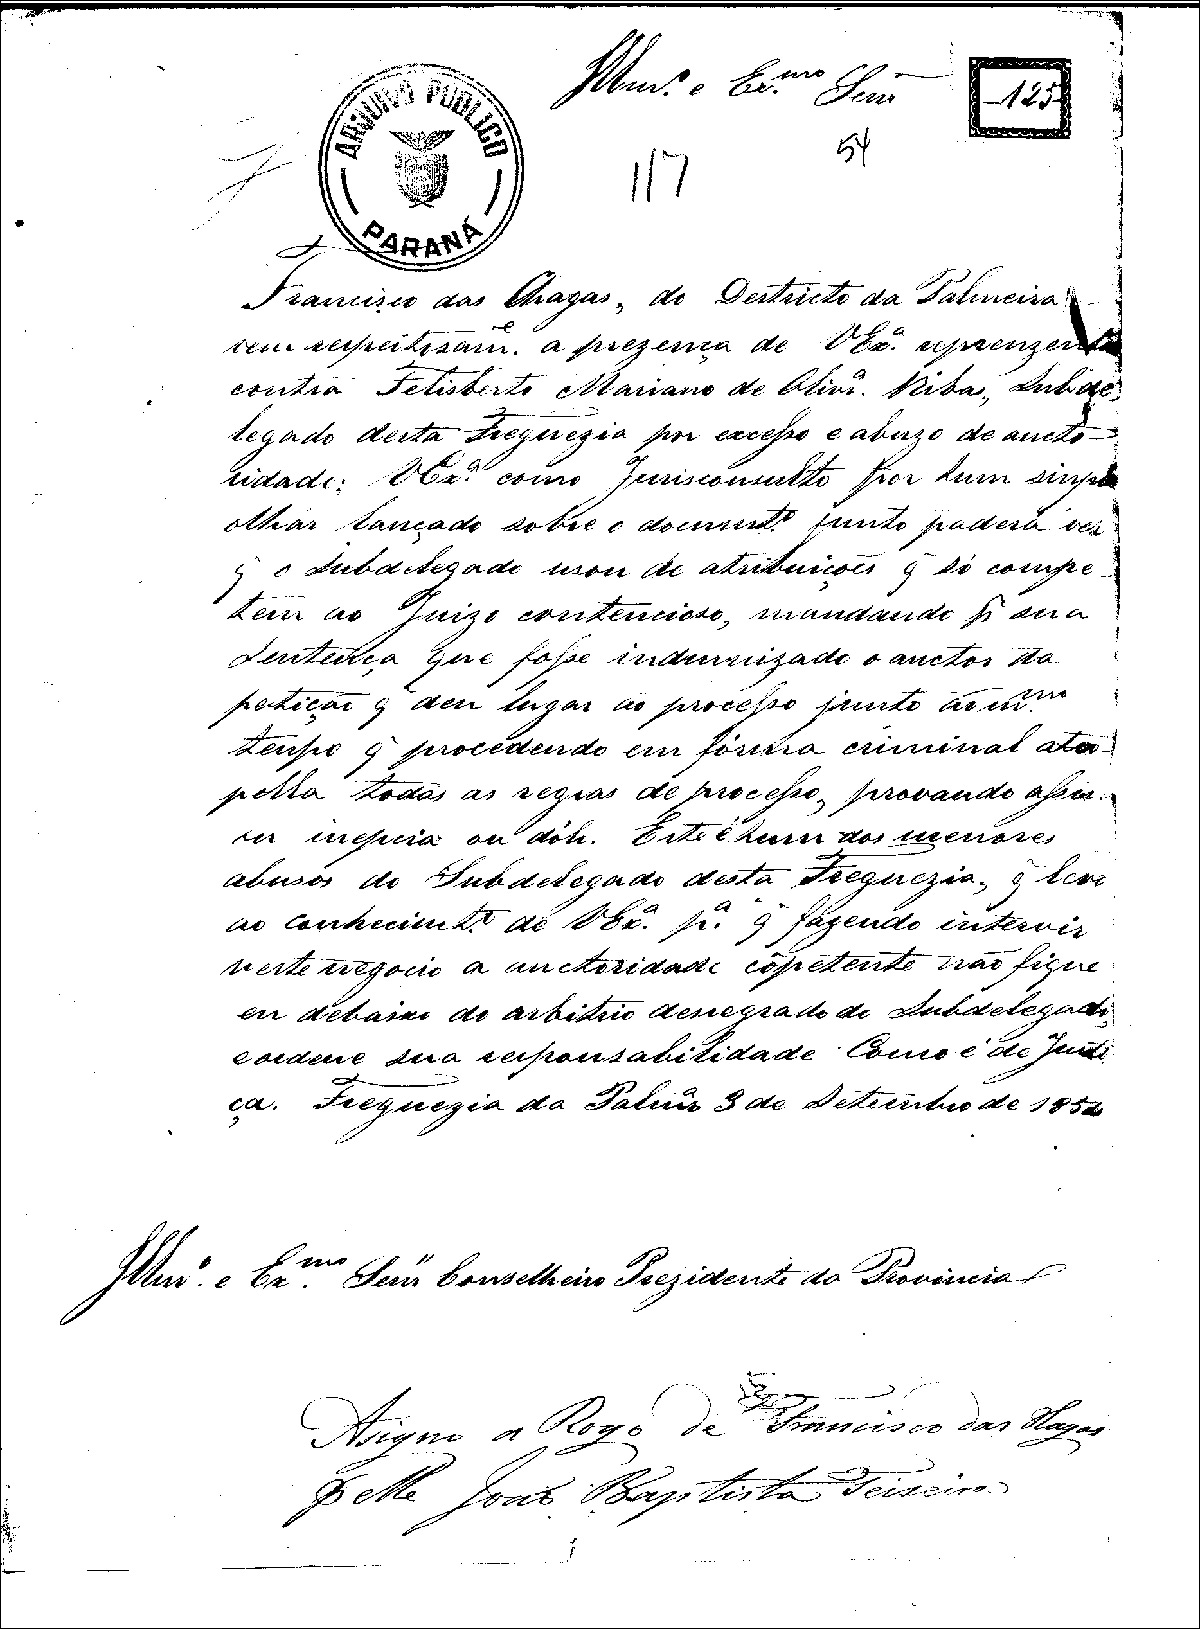 Illmº. e Ex.mo Senr
125
54
117
ARQUIVO PÚBLICO
PARANÁ
Francisco das Chagas, do Destricto da Palmeira
vem respeitosame. a prezença de VExª. reprenzenta
contra Felisberto Mariano de Olivrª. Ribas, Subde
legado desta Freguezia por excesso e abuzo de aucto
ridade; VExª. como Jurisconsulto por hum simples
olhar lançado sobre o documtº. junto poderá ver
q̃ o Subdelegado usou de atribuiçoes q̃ só compe
tem ao Juizo contencioso, mandando pr. sua
Sentença que fosse indemnizado o auctor da
petição q̃ deu lugar ao processo junto ao mmo.
tempo q̃ procedendo em fórma criminal atro
pella todas as regras de processo, provando assim
ou inepcia ou dólo. Este é hum dos menores
abusos do Subdelegado desta Freguezia, q̃ levo
ao conhecimtº. de VExª. pª. q̃ fazendo intervir
neste negocio a auctoridade cõpetente não fique
eu debaixo do arbitrio desregrado do Subdelegado,
e ordene sua responsabilidade Como é de Justi
ça. Freguezia da Palmrª 3 de Setembro de 185
Illmº. e Exmo. Senr Conselheiro Prezidente da Provincia
Asigno a Rogo de Francisco das Hagas
João Baptista Teixeira